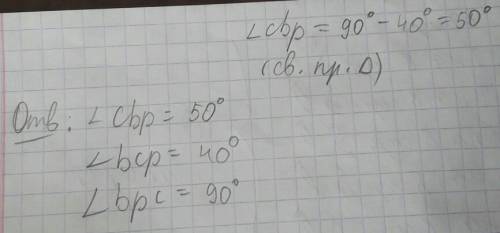 ∠cbp = 90° - 40° = 50°
(св. пр. Δ)
Отв: ∠cbp = 50°
∠bcp = 40°
∠bpc = 90°